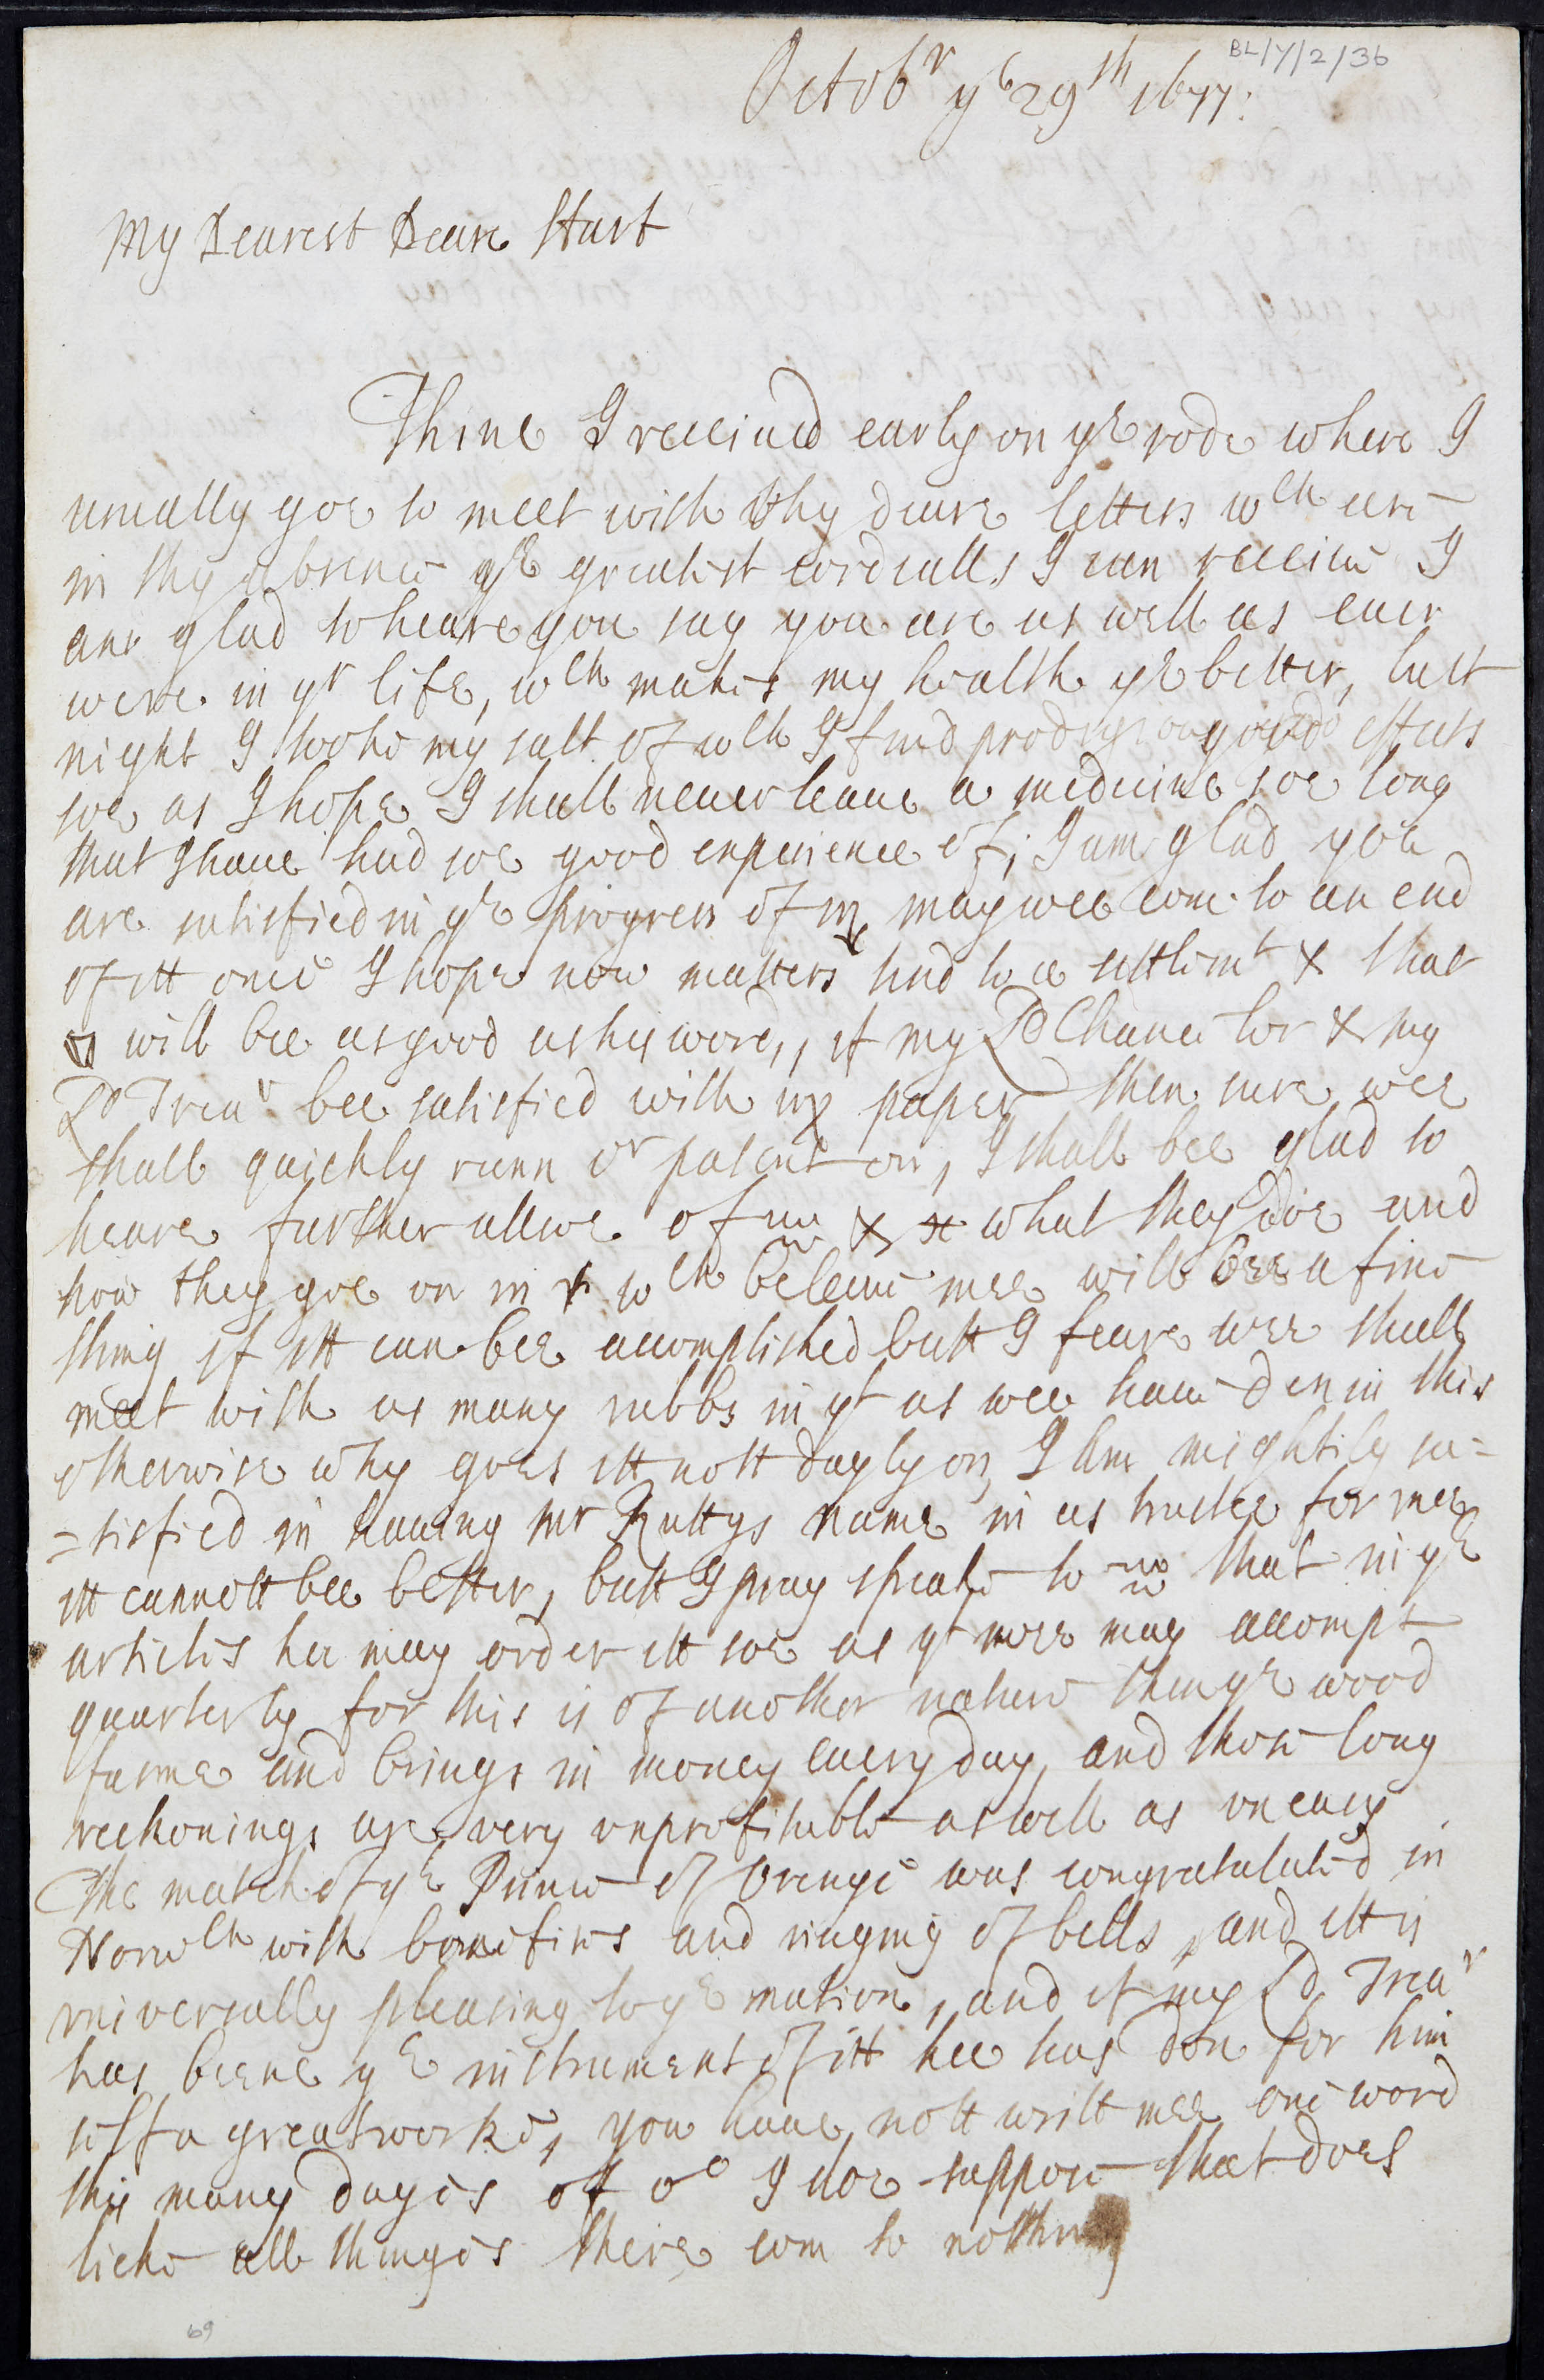 BL/Y/2/36
Octobr ye 29th 1677:
My Dearest Deare Hart
Thine I receiued early on ye rode where I
usually goe to meet with thy deare letters wch are
in thy absence ye greatest cordialls I can receiue I
am glad to heare you say you are as well as euer
were in yr life, wch makes my health ye better, last
night I tooke my salt of wch I find prodigious good effects
soe as I hope I shall neuer leaue a medicine soe long
that I haue had soe good experience of; I am glad you
are satisfied in ye progress of may wee come to an end
of itt once I hope now matters tend to a settlemt & that
will bee as good as his word, if my Ld Chancelor & my
Ld Trear bee satisfied with paper then sure wee
shall quickly runn or patent ouer, I shall bee glad to
heare further allsoe of & what they doe and
how they goe on in wch beleeue mee will bee a fine
thing if itt can bee accomplished butt I feare wee shall
meet with as many rubbs in yt as wee haue don in this
otherwise why goes itt nott dayly on, I am mightily sa=
=tisfied in hauing mr Ruttys name in as trustee for mee
itt cannott bee better, butt I pray speake to that in ye
articles hee may order itt soe as yt wee may accompt
quarterly for this is of another nature then ye wood
farme and brings in money euery day, and those long
reckonings are very vnprofitable as well as vneasy
The match of ye Prince of Orenge was congratulated in
Norwch with bonefires and ringing of bells, and itt is
vniversally pleasing to ye nation, and if my Ld Trear
has beene ye instrument of itt hee has don for him
selfe a great worke, you haue nott writt mee one word
this many dayes of I doe suppose that does
licke all thinges there com to nothing
69